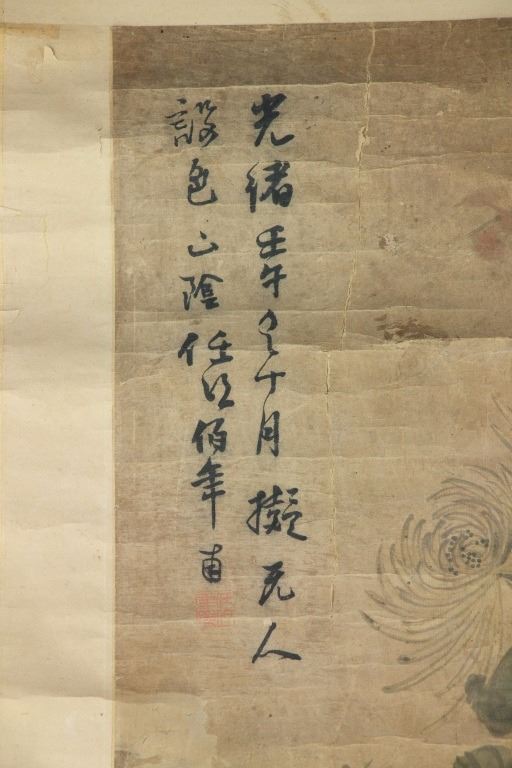 光緒壬午冬十月擬元人
設色山陰任頤伯年甫